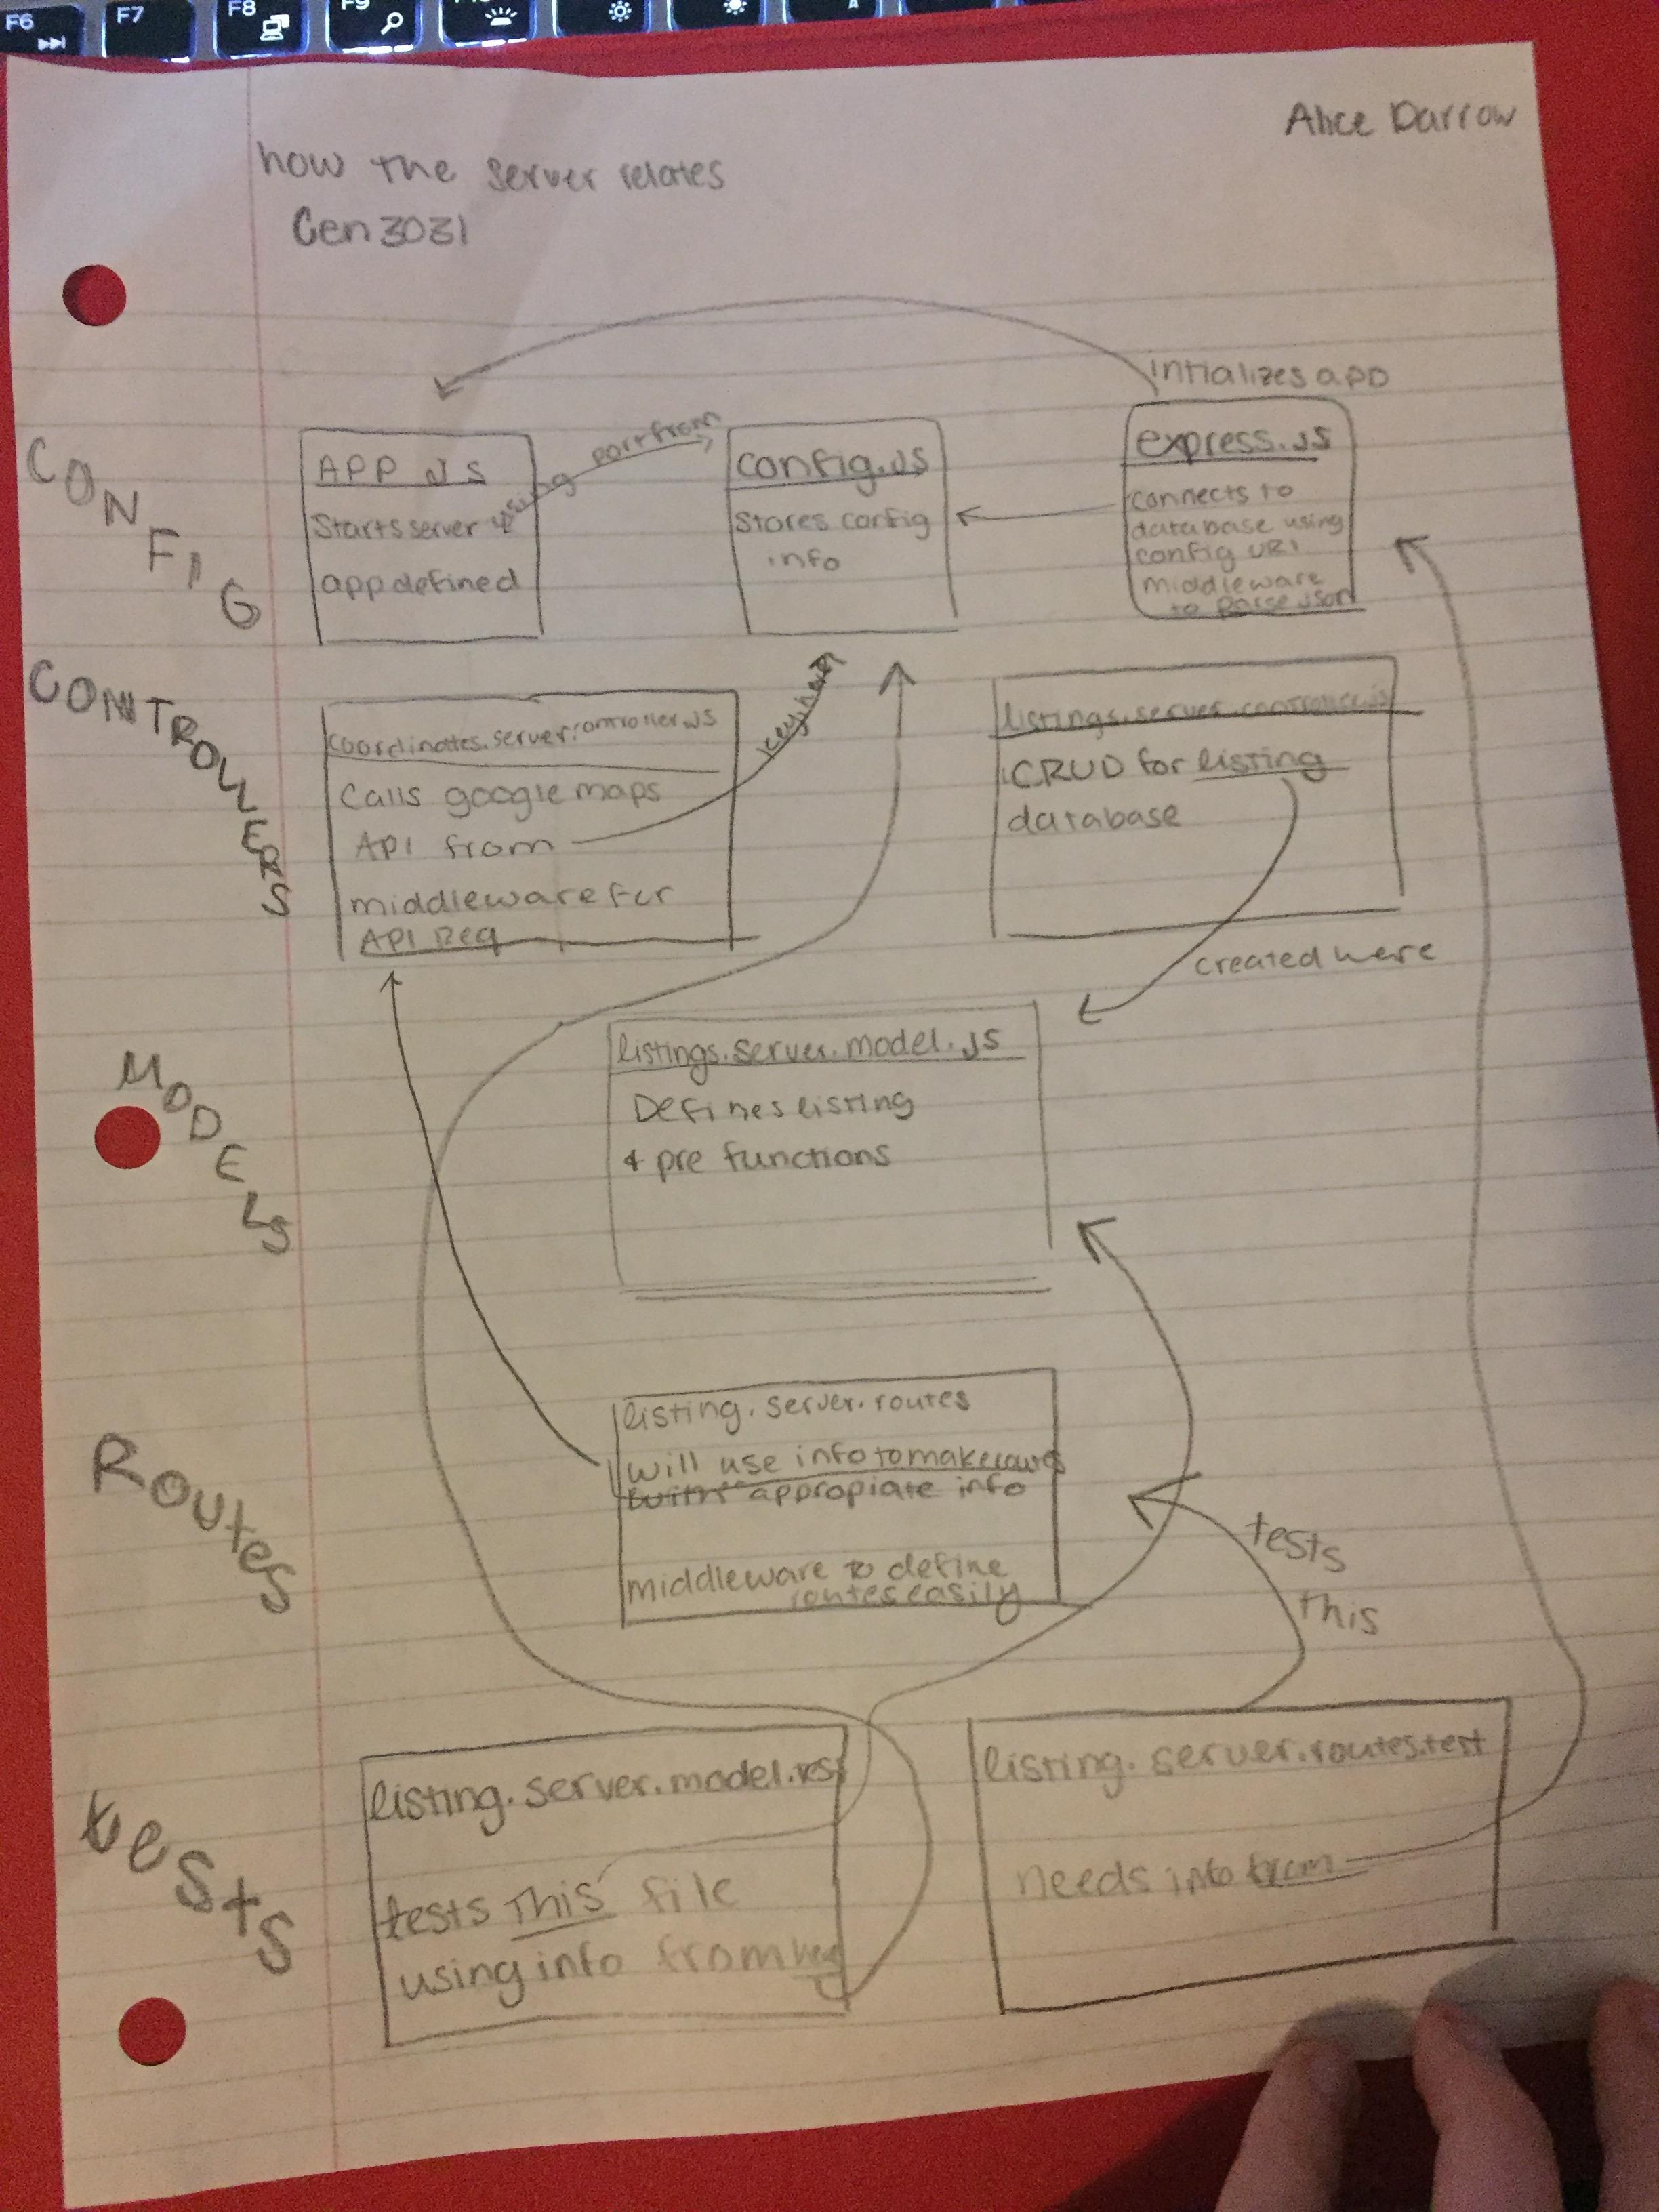 Alice Darrow
how the server relates
Cen 3031
intializes app
CONFIG
APP JS
Starts server using port from
app defined
config.js
stores config
info
express.js
connects to
database using
config uri
middleware
to parse json
CONTROLLERS
coordinates.server.controller.js
Calls google maps
API from
middleware for
API req
listings.server.controller.js
CRUD for listing
database
created here
MODELS
listings.server.model.js
Defines listing
+ pre functions
Routes
listing.server.routes
will use info to make
with appropiate info
middleware to define
routes easily
tests
this
tests
listing.server.model.test
tests this file
using info from here
listing.server.routes.test
needs info from